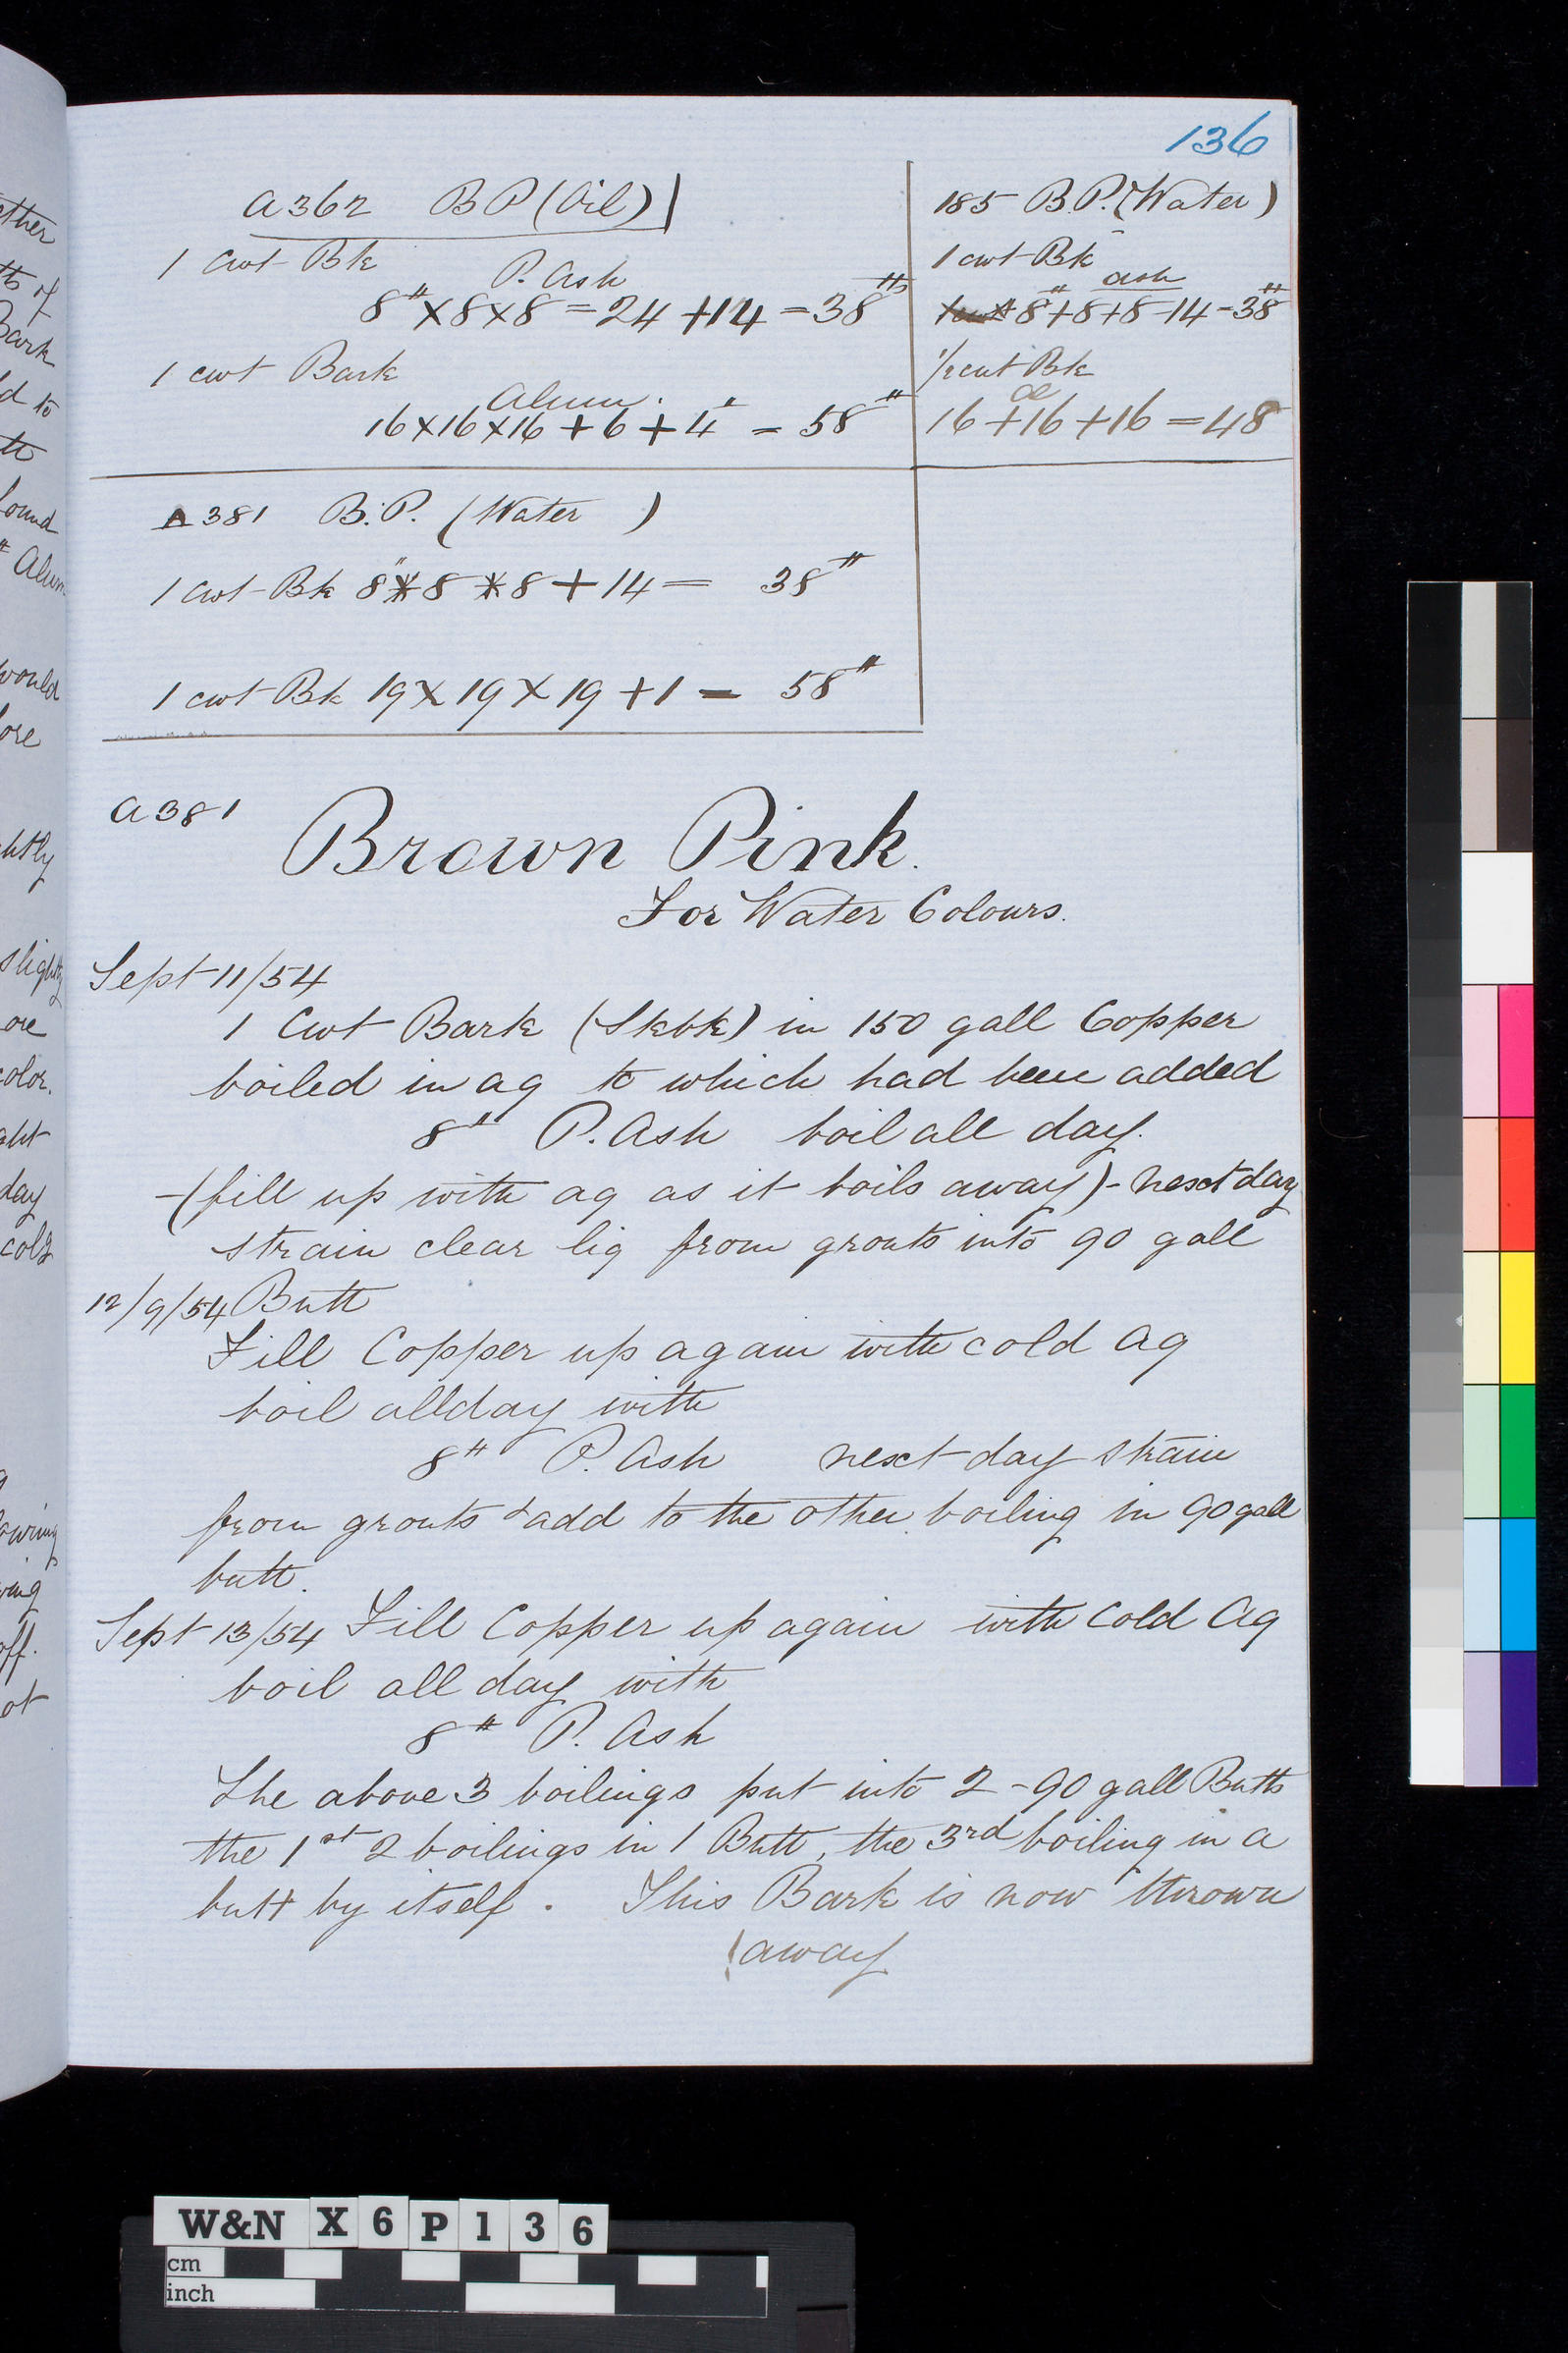 136
A 362 B P (Oil)
1 cwt Bk
P. Ash
8" × 8 × 8 = 24 + 14 = 38 lbs
1 cwt Bark
Alum.
16 × 16 × 16 + 6 + 4" = 58"
185 B.P. (Water)
1 cwt Bk
ash
8" + 8 + 8 - 14 - 38"
1/2 cwt Bk
al
16 + 16 + 16 = 48
A 381 B.P. (Water )
1 cwt Bk 8" * 8 * 8 + 14 = 38"
1 cwt Bk 19 × 19 × 19 + 1 = 58"
A 381
Brown Pink.
For Water Colours.
Sept 11/54
1 Cwt Bark (Skbk) in 150 gall Copper
boiled in aq to which had been added
8" P. Ash boil all day.
-(fill up with aq as it boils away)- next day
strain clear liq from grouts into 90 gall
12/9/54 Butt
Fill Copper up again with cold aq
boil allday with
8" P. Ash next day strain
from grouts & add to the other boiling in 90 gall
butt.
Sept 13/54 Fill Copper up again with Cold Aq
boil all day with
8" P. Ash
The above 3 boilings put into 2-90 gall Butts
the 1st 2 boilings in 1 Butt, the 3rd boiling in a
butt by itself. This Bark is now thrown
(away
ether
Bark
d to
found
" Alum
would
slightly
color.
day
off.
W&N X 6 P 1 3 6
cm
inch